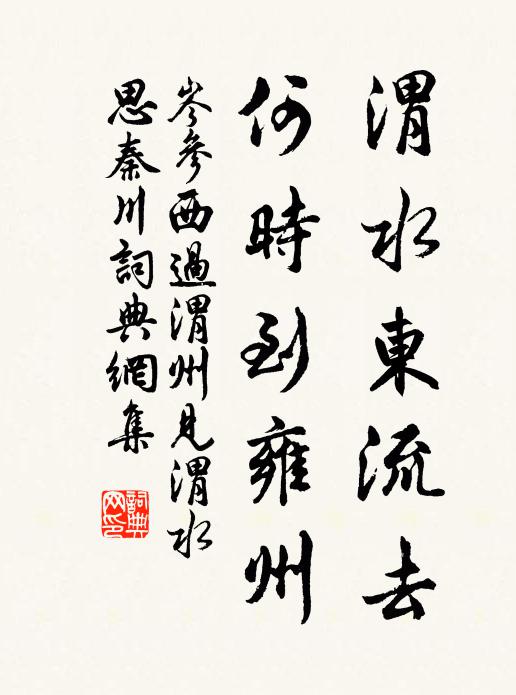 渭水東流去
何時到雍州
岑參西過渭州見渭水
思秦川詞典網集
詞典
网印